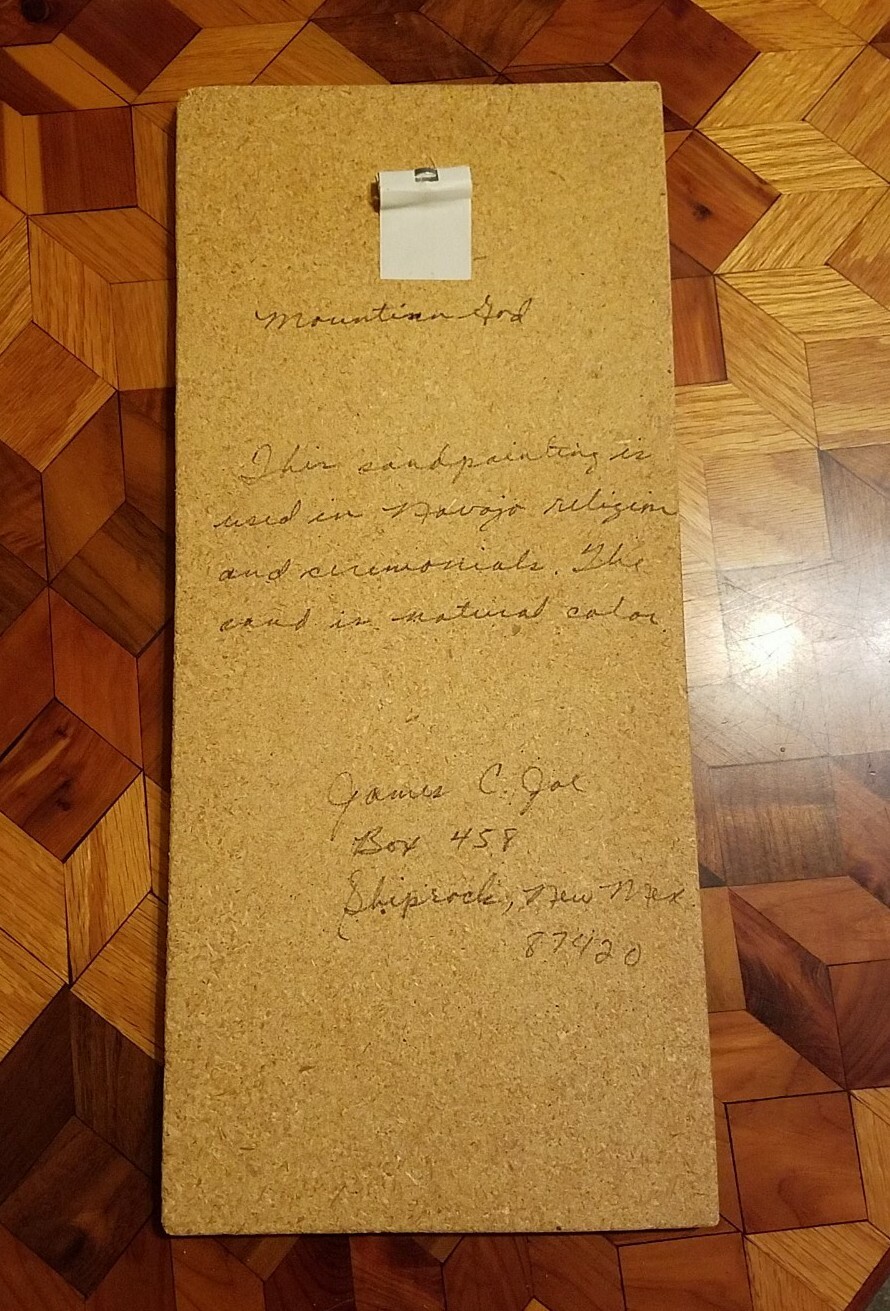 Mountian God
This sandpainting is
used in Navajo religion
and ceremonials. The
sand is natural color
James C. Joe
Box 458
Shiprock, New Mex
87420